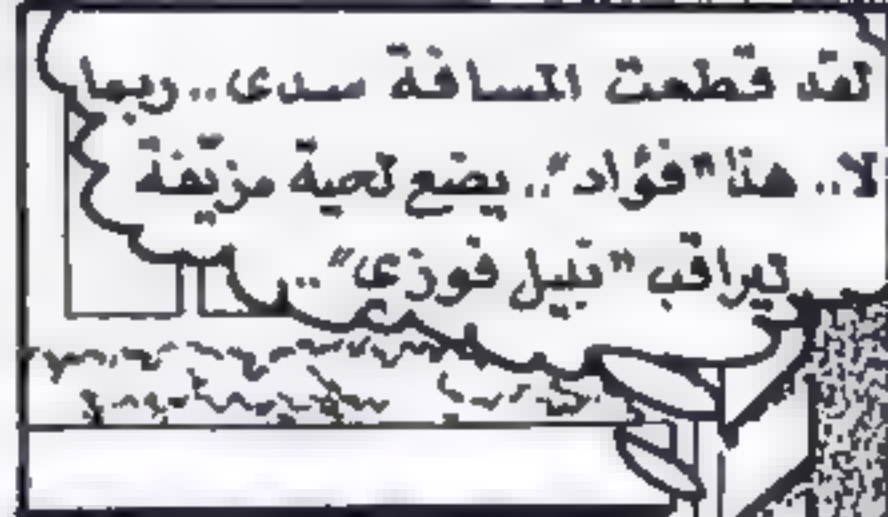 لقد قطعت المسافة سدى.. ربما
لا.. هذا "فؤاد".. يضع لحية مزيّفة
ليراقب "نبيل فوزى"..